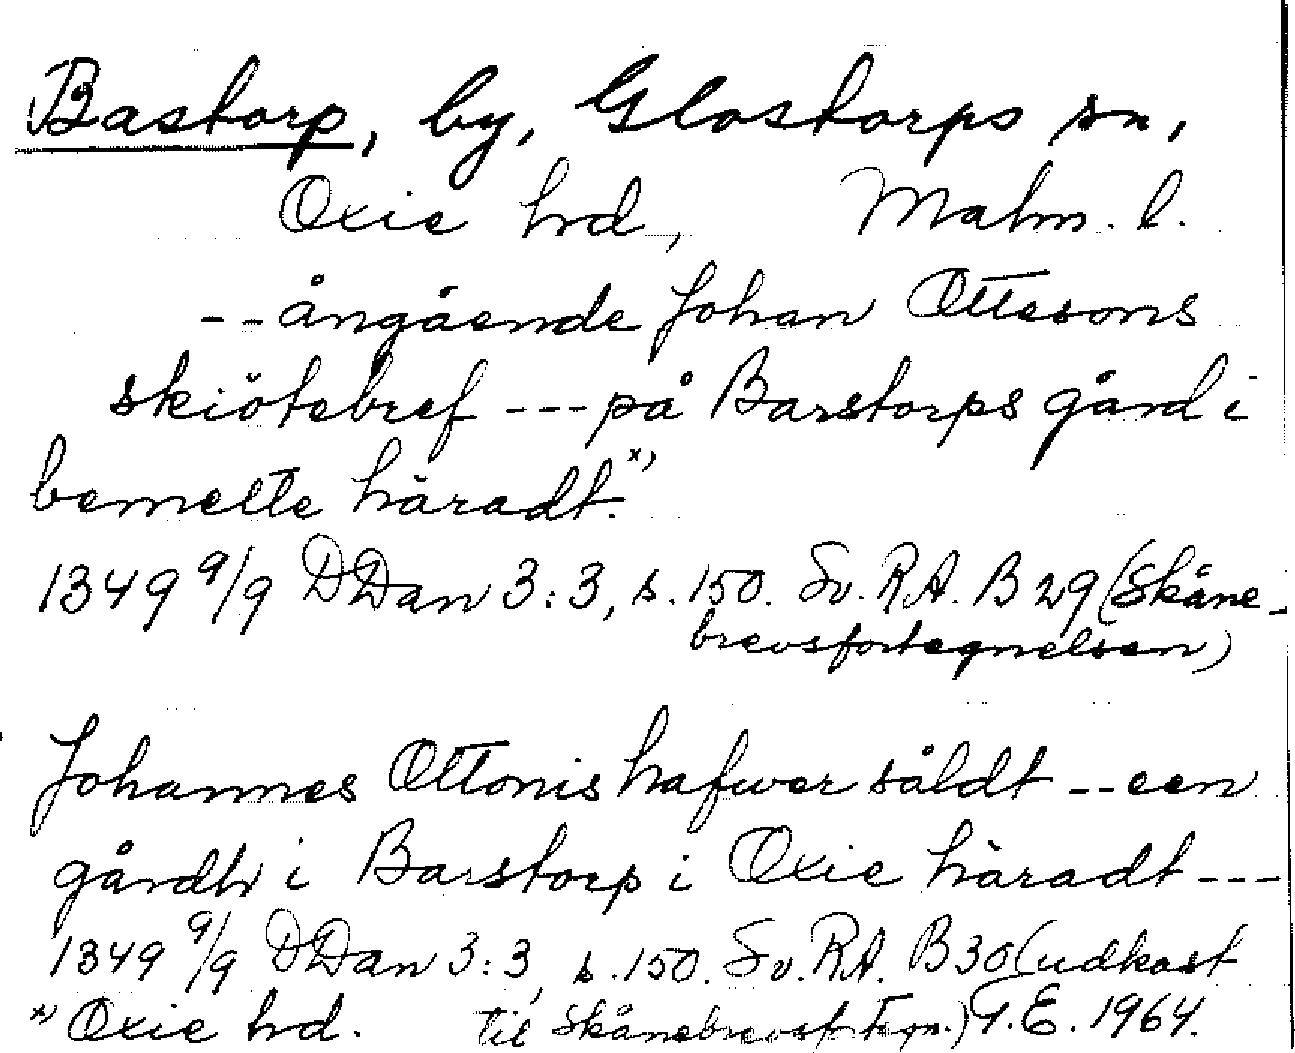 Bastorp, by, Glostorps sn,
Oxie hrd, Malm. l.
--ångående Johan Ottesons
skiötebref --- på Barstorps gård i
bemelte häradt. x)
1349 9/9 DDan 3:3, s. 150. Sv. RA. B 29 (Skåne-
brevsfortegnelsen)
Johannes Ottonis hafwer såldt -- een
gårdh i Barstorp i Oxie häradt ---
1349 9/9 DDan 3:3, s. 150. Sv. RA. B 30 (udkast
x) Oxie hrd. til Skånebrevsfortegn.) G.E. 1964.